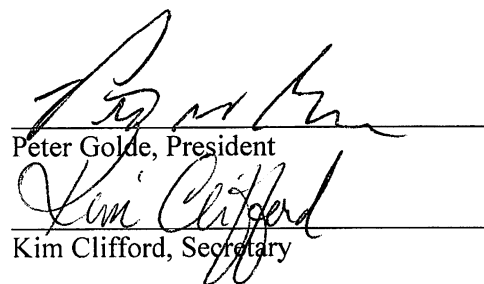 Peter Golde, President
Kim Clifford
Kim Clifford, Secretary